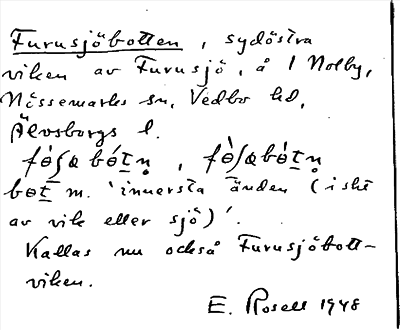 Furusjöbotten, sydöstra
viken av Furusjö, å 1 Nolby,
Nössemarks sn, Vedbo hd,
Älvsborgs l.
bɵt m. 'innersta änden (i sht
av vik eller sjö)'.
Kallas nu också Furusjöbott-
viken.
E. Rosell 1948